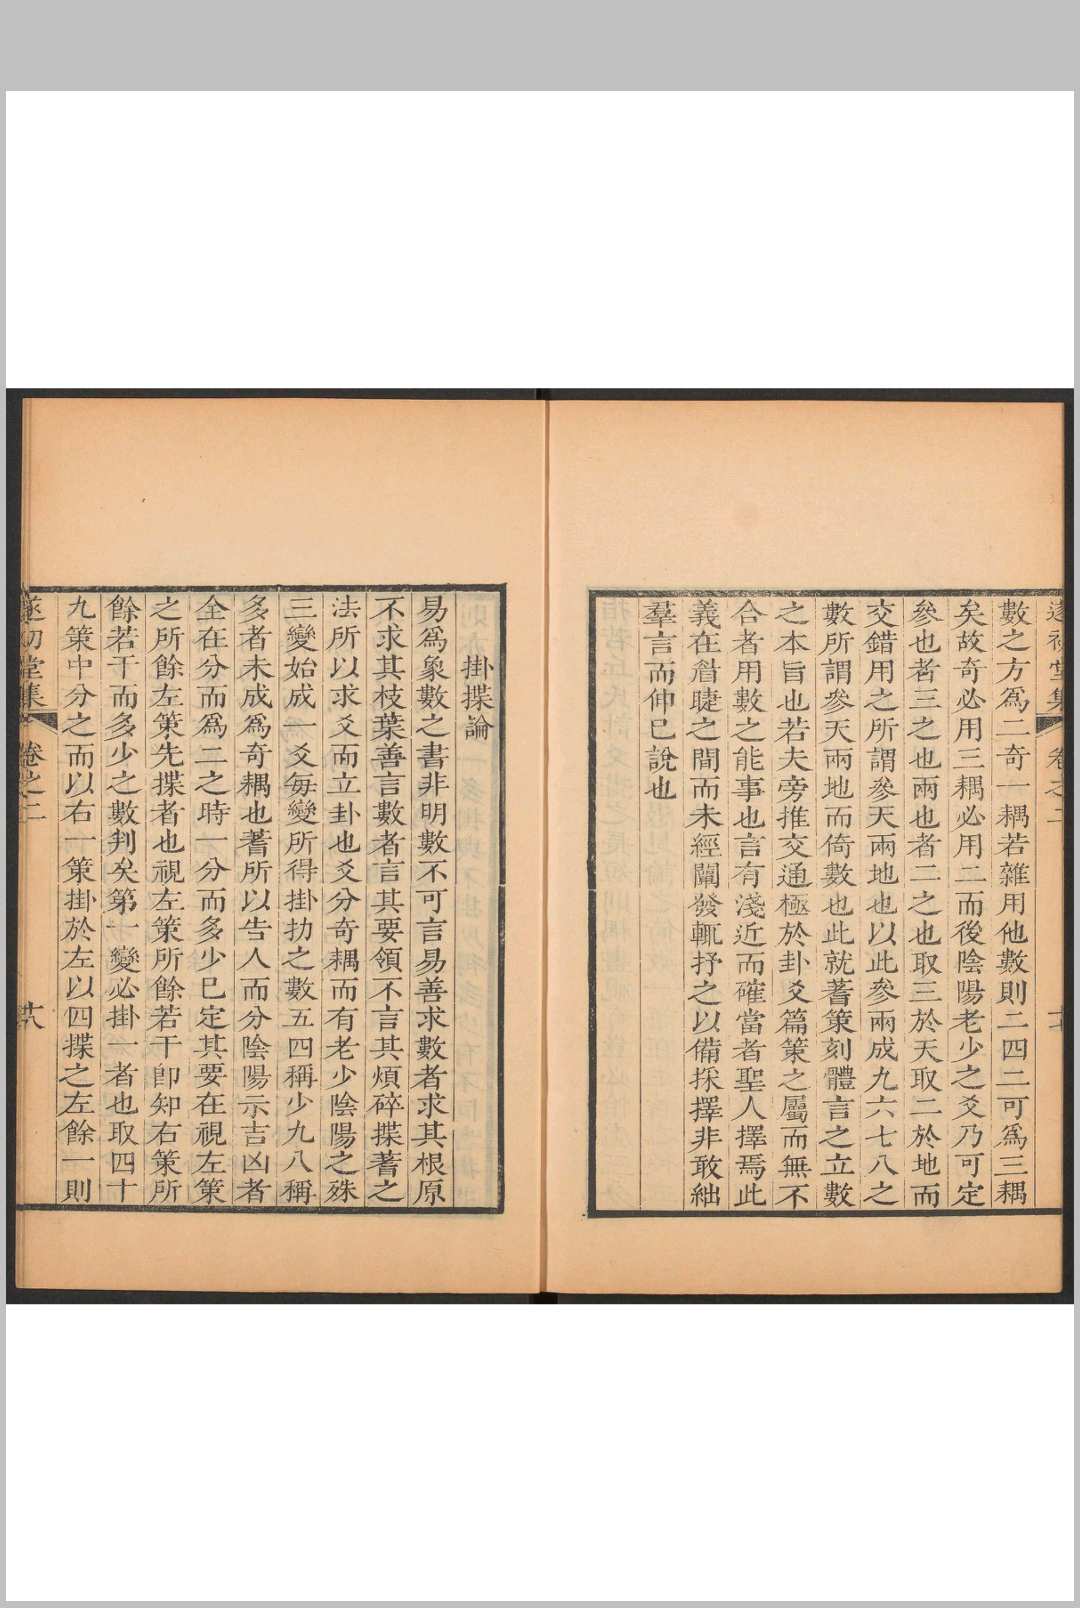 遂初堂集 卷之二
數之方爲二奇一耦若雜用他數則二四二可爲三耦
矣故奇必用三耦必用二而後陰陽老少之爻乃可定
參也者三之也兩也者二之也取三於天取二於地而
交錯用之所謂參天兩地也以此參兩成九六七八之
數所謂參天兩地而倚數也此就蓍策刻體言之立數
之本旨也若夫旁推交通極於卦爻篇策之屬而無不
合者用數之能事也言有淺近而確當者聖人擇焉此
義在眉睫之間而未經闡發輒抒之以備採擇非敢絀
羣言而伸已說也
掛揲論
易爲象數之書非明數不可言易善求數者求其根原
不求其枝葉善言數者言其要領不言其煩碎揲蓍之
法所以求爻而立卦也爻分奇耦而有老少陰陽之殊
三變始成一爻每變所得掛扐之數五四稱少九八稱
多者未成爲奇耦也蓍所以告人而分陰陽示吉凶者
全在分而爲二之時一分而多少已定其要在視左策
之所餘左策先揲者也視左策所餘若干卽知右策所
餘若干而多少之數判矣第一變必掛一者也取四十
九策中分之而以右一策掛於左以四揲之左餘一則
遂初堂集 卷之二 十八